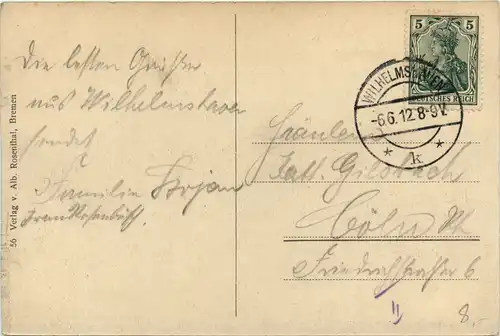 Die besten Grüße
aus Wilhelmshaven
sendet
Familie
Frau Rosenbusch
56 Verlag v. Alb. Rosenthal, Bremen
5 5
DEUTSCHES REICH
WILHELMSHAVEN
-6.6.12.8-9V.
* k *
Fräulein
Gilsbach
Cöln Rh
Friedrichstraße 6
8.-